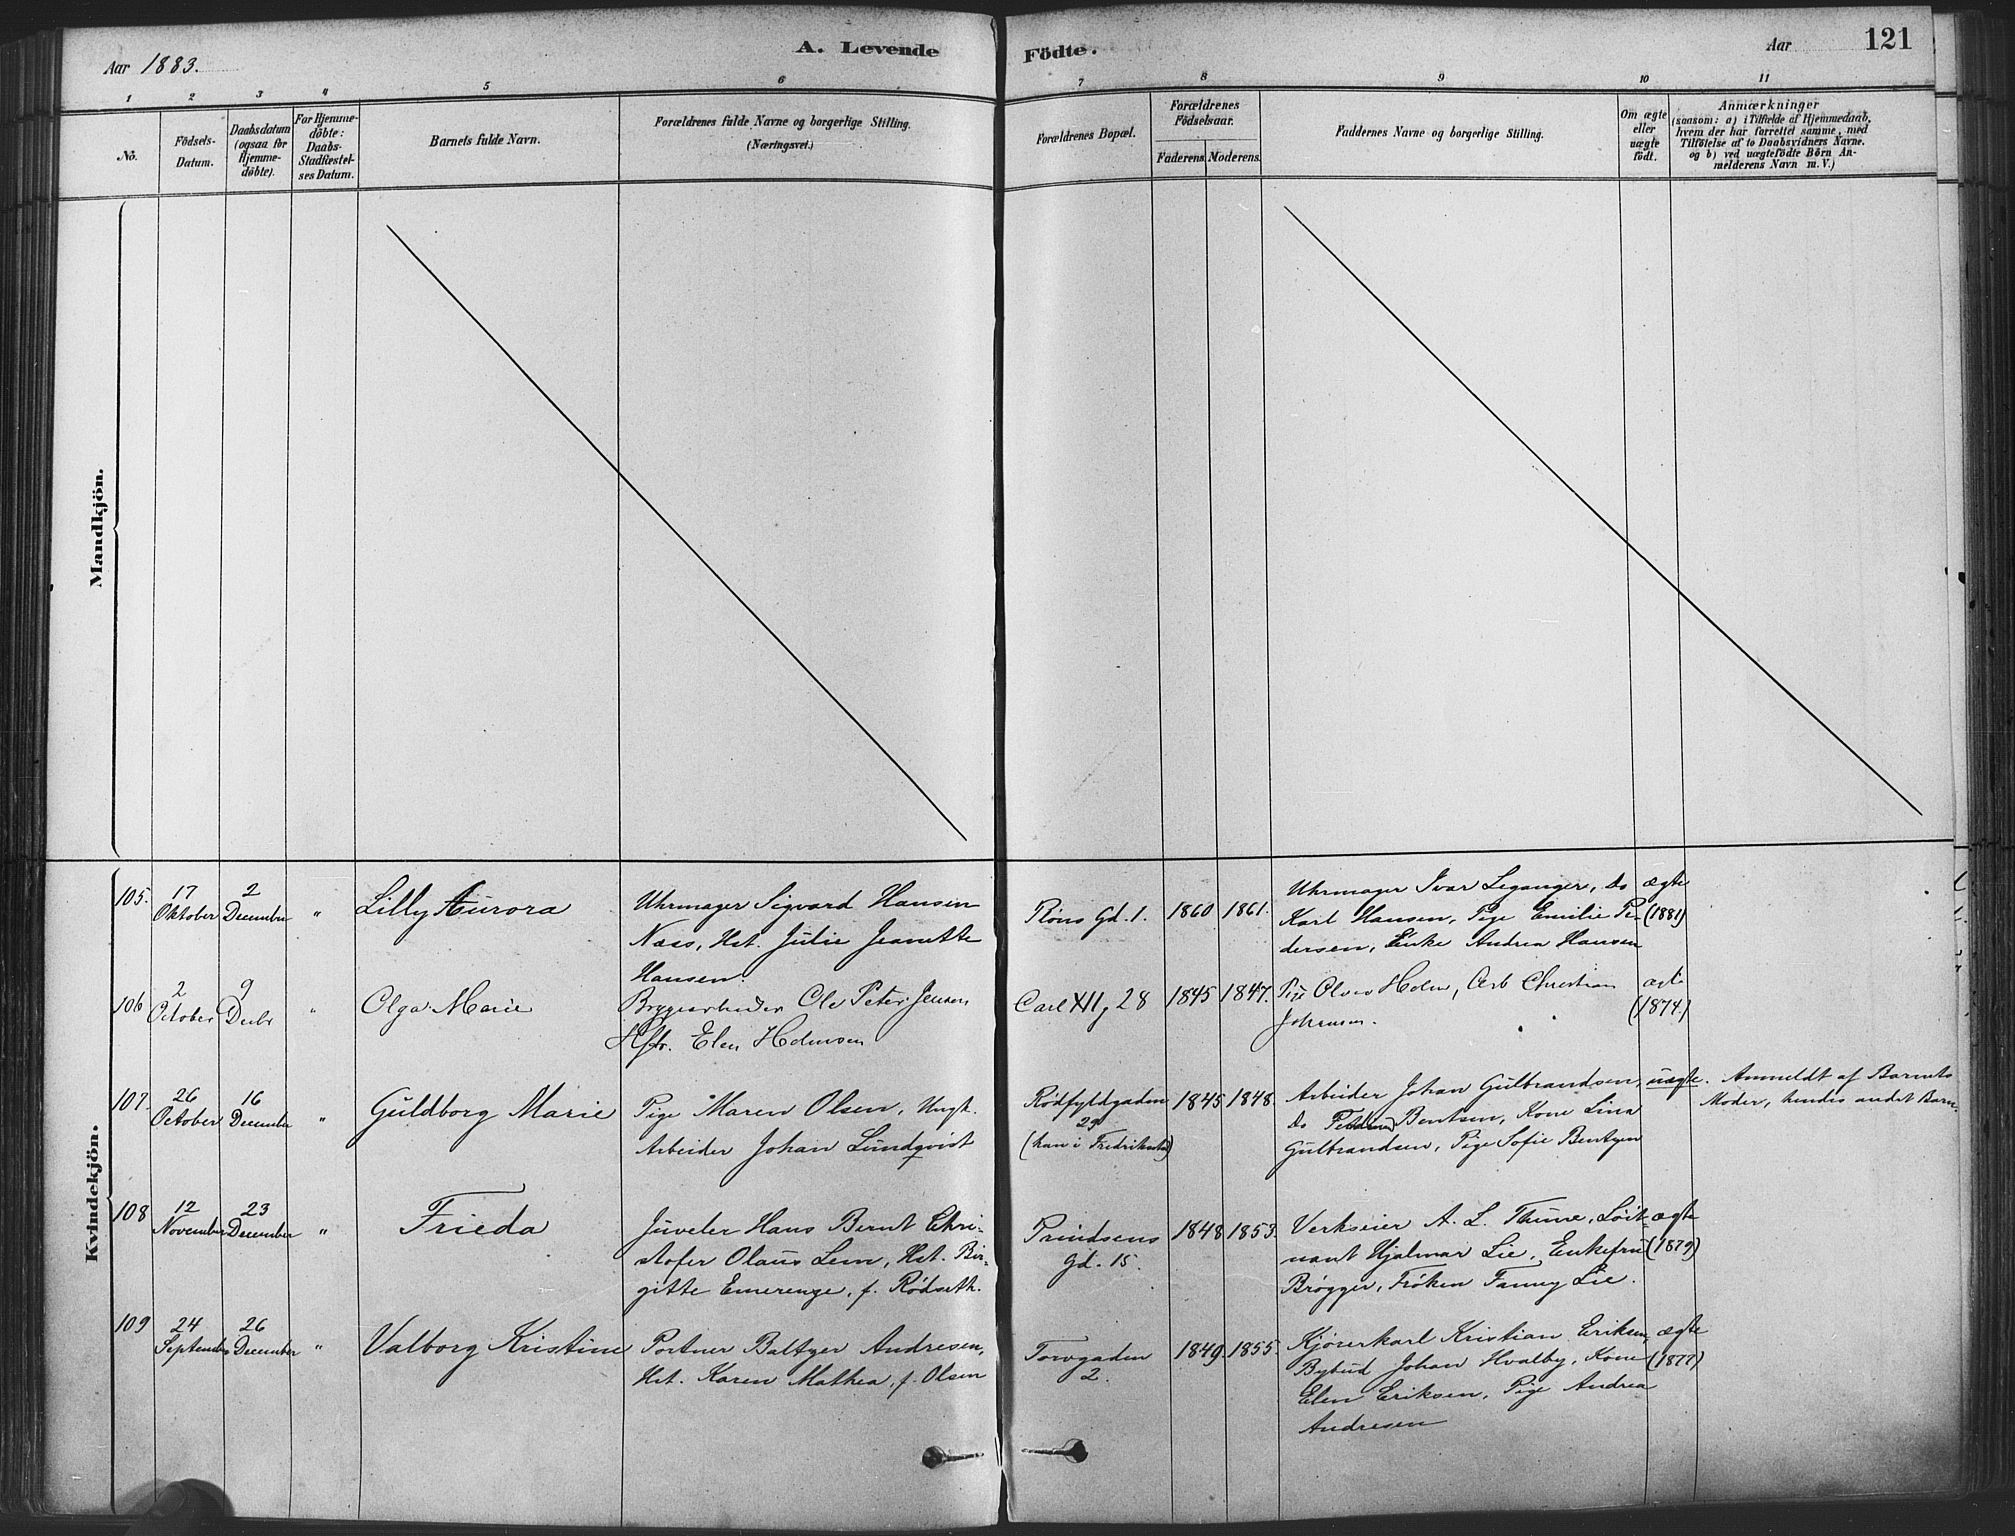 Aar 1883.
A. Levende
Födte.
Aar
121
1 2 3 4 5 6 7 8 9 10 11
No.
Födsels-
Datum.
Daabsdatum
(ogsaa for
Hjemme-
döbte).
For Hjemme-
döbte:
Daabs-
Stadfæstel-
ses Datum.
Barnets fulde Navn.
Forældrenes fulde Navne og borgerlige Stilling.
(Næringsvei.)
Forældrenes Bopæl.
Forældrenes
Födselsaar.
Faderens. Moderens.
Faddernes Navne og borgerlige Stilling.
Om ægte
eller
uægte
födt.
Anmærkninger
(saasom: a) i Tilfælde af Hjemmedaab,
hvem der har forrettet samme, med
Tilföielse af to Daabsvidners Navne,
og b) ved uægtefödte Börn An-
melderens Navn m. V.)
Mandkjön.
Kvindekjön.
105. 17 Oktober 2 December " Lilly Aurora
Uhrmager Sigvard Hansen
Næss, Hst. Julie Jeanette
Hansen.
Gd. 1. 1860 1861.
Uhrmager Ivar Leganger, do
Karl Hansen, Pige Emilie Pe-
dersen, Enke Andrea Hansen
ægte
(1881)
106 2 October 9 Decbr " Olga Marie
Bryggearbeider Ole Peter Jensen
Hstr. Elen Holmsen
Carl XII g 28 1845 1847.
Pige Holm, Arb Christian
Johansen.
ægte
(1874)
107. 26 October 16 December " Guldborg Marie
Pige Maren Olsen, Ungk.
Arbeider Johan Lundqvist
Rödfyldgaden
29
(han i Fredriksstad)
1845 1848.
Arbeider Johan Gulbrandsen,
do Bentsen, Kone Lina
Gulbrandsen, Pige Sofie Bentzen
uægte.
Anmeldt af Barnets
Moder, hendes andet Barn.
108 12 November 23 December " Frieda
Juveler Hans Bernt Chri-
stofer Olaus Lem, Hst. Bir-
gitte Emerenze, f. Rödseth.
Prindsens
Gd. 15.
1848 1853.
Verkseier A. L. Thune, Löit-
nant Hjalmar Lie, Enkefru
Brögger, Fröken Fanny Lie.
ægte
(1879)
109 24 September 26 December " Valborg Kristine
Portner Baltzer Andresen,
Hst. Karen Mathea, f. Olsen
Torvgaden
2.
1849. 1855.
Kjörerkarl Kristian Eriksen
Bybud Johan Hvalby, Kone
Elen Eriksen, Pige Andrea
Andresen
ægte
(1877)